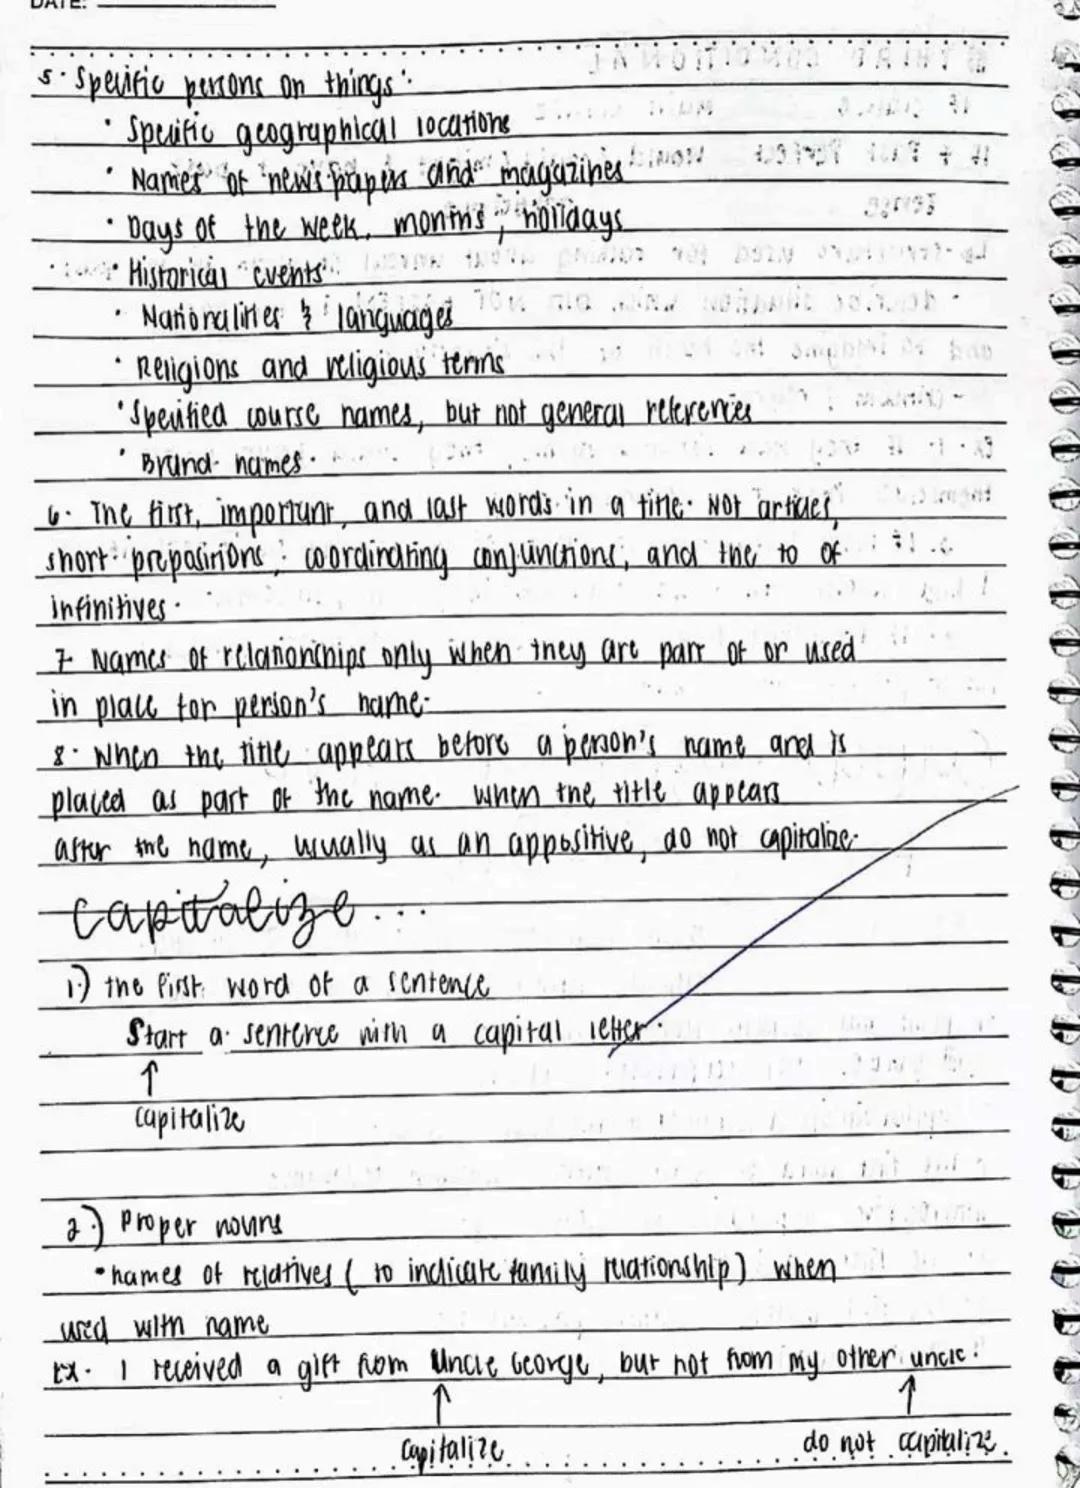 DATE:
5. Specific persons on things:
• Specific geographical locations
• Names of newspapers and magazines
• Days of the week, months, holidays
• Historical events
• Nationalities & languages
• Religions and religious terms
• Specified course names, but not general references
• Brand names.
6. The first, important, and last words in a title. Not articles,
short prepositions, coordinating conjunctions, and the to of
infinitives.
7. Names of relationships only when they are part of or used
in place for person's name.
8. When the title appears before a person's name and is
placed as part of the name. When the title appears
after the name, usually as an appositive, do not capitalize.
Capitalize...
1.) the first word of a sentence
Start a sentence with a capital letter.
↑
capitalize
2.) Proper nouns
• names of relatives (to indicate family relationship) when
used with name
Ex. I received a gift from Uncle George, but not from my other uncle.
↑ ↑
capitalize do not capitalize.